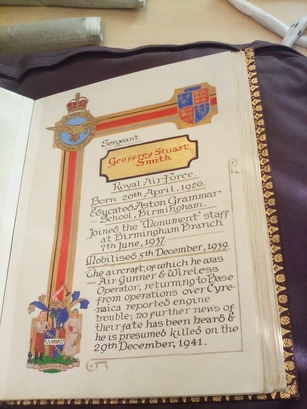 Sergeant
Geoffrey Stuart
Smith
Royal Air Force.
Born 20th April, 1920.
Educated Aston Grammar
School, Birmingham.
Joined the 'Monument' staff
at Birmingham Branch
7th June, 1937.
Mobilised 5th December, 1939.
The aircraft, of which he was
Air Gunner & Wireless
Operator, returning to Base
from operations over Cyre-
naica reported engine
trouble; no further news of
their fate has been heard &
he is presumed killed on the
29th December, 1941.